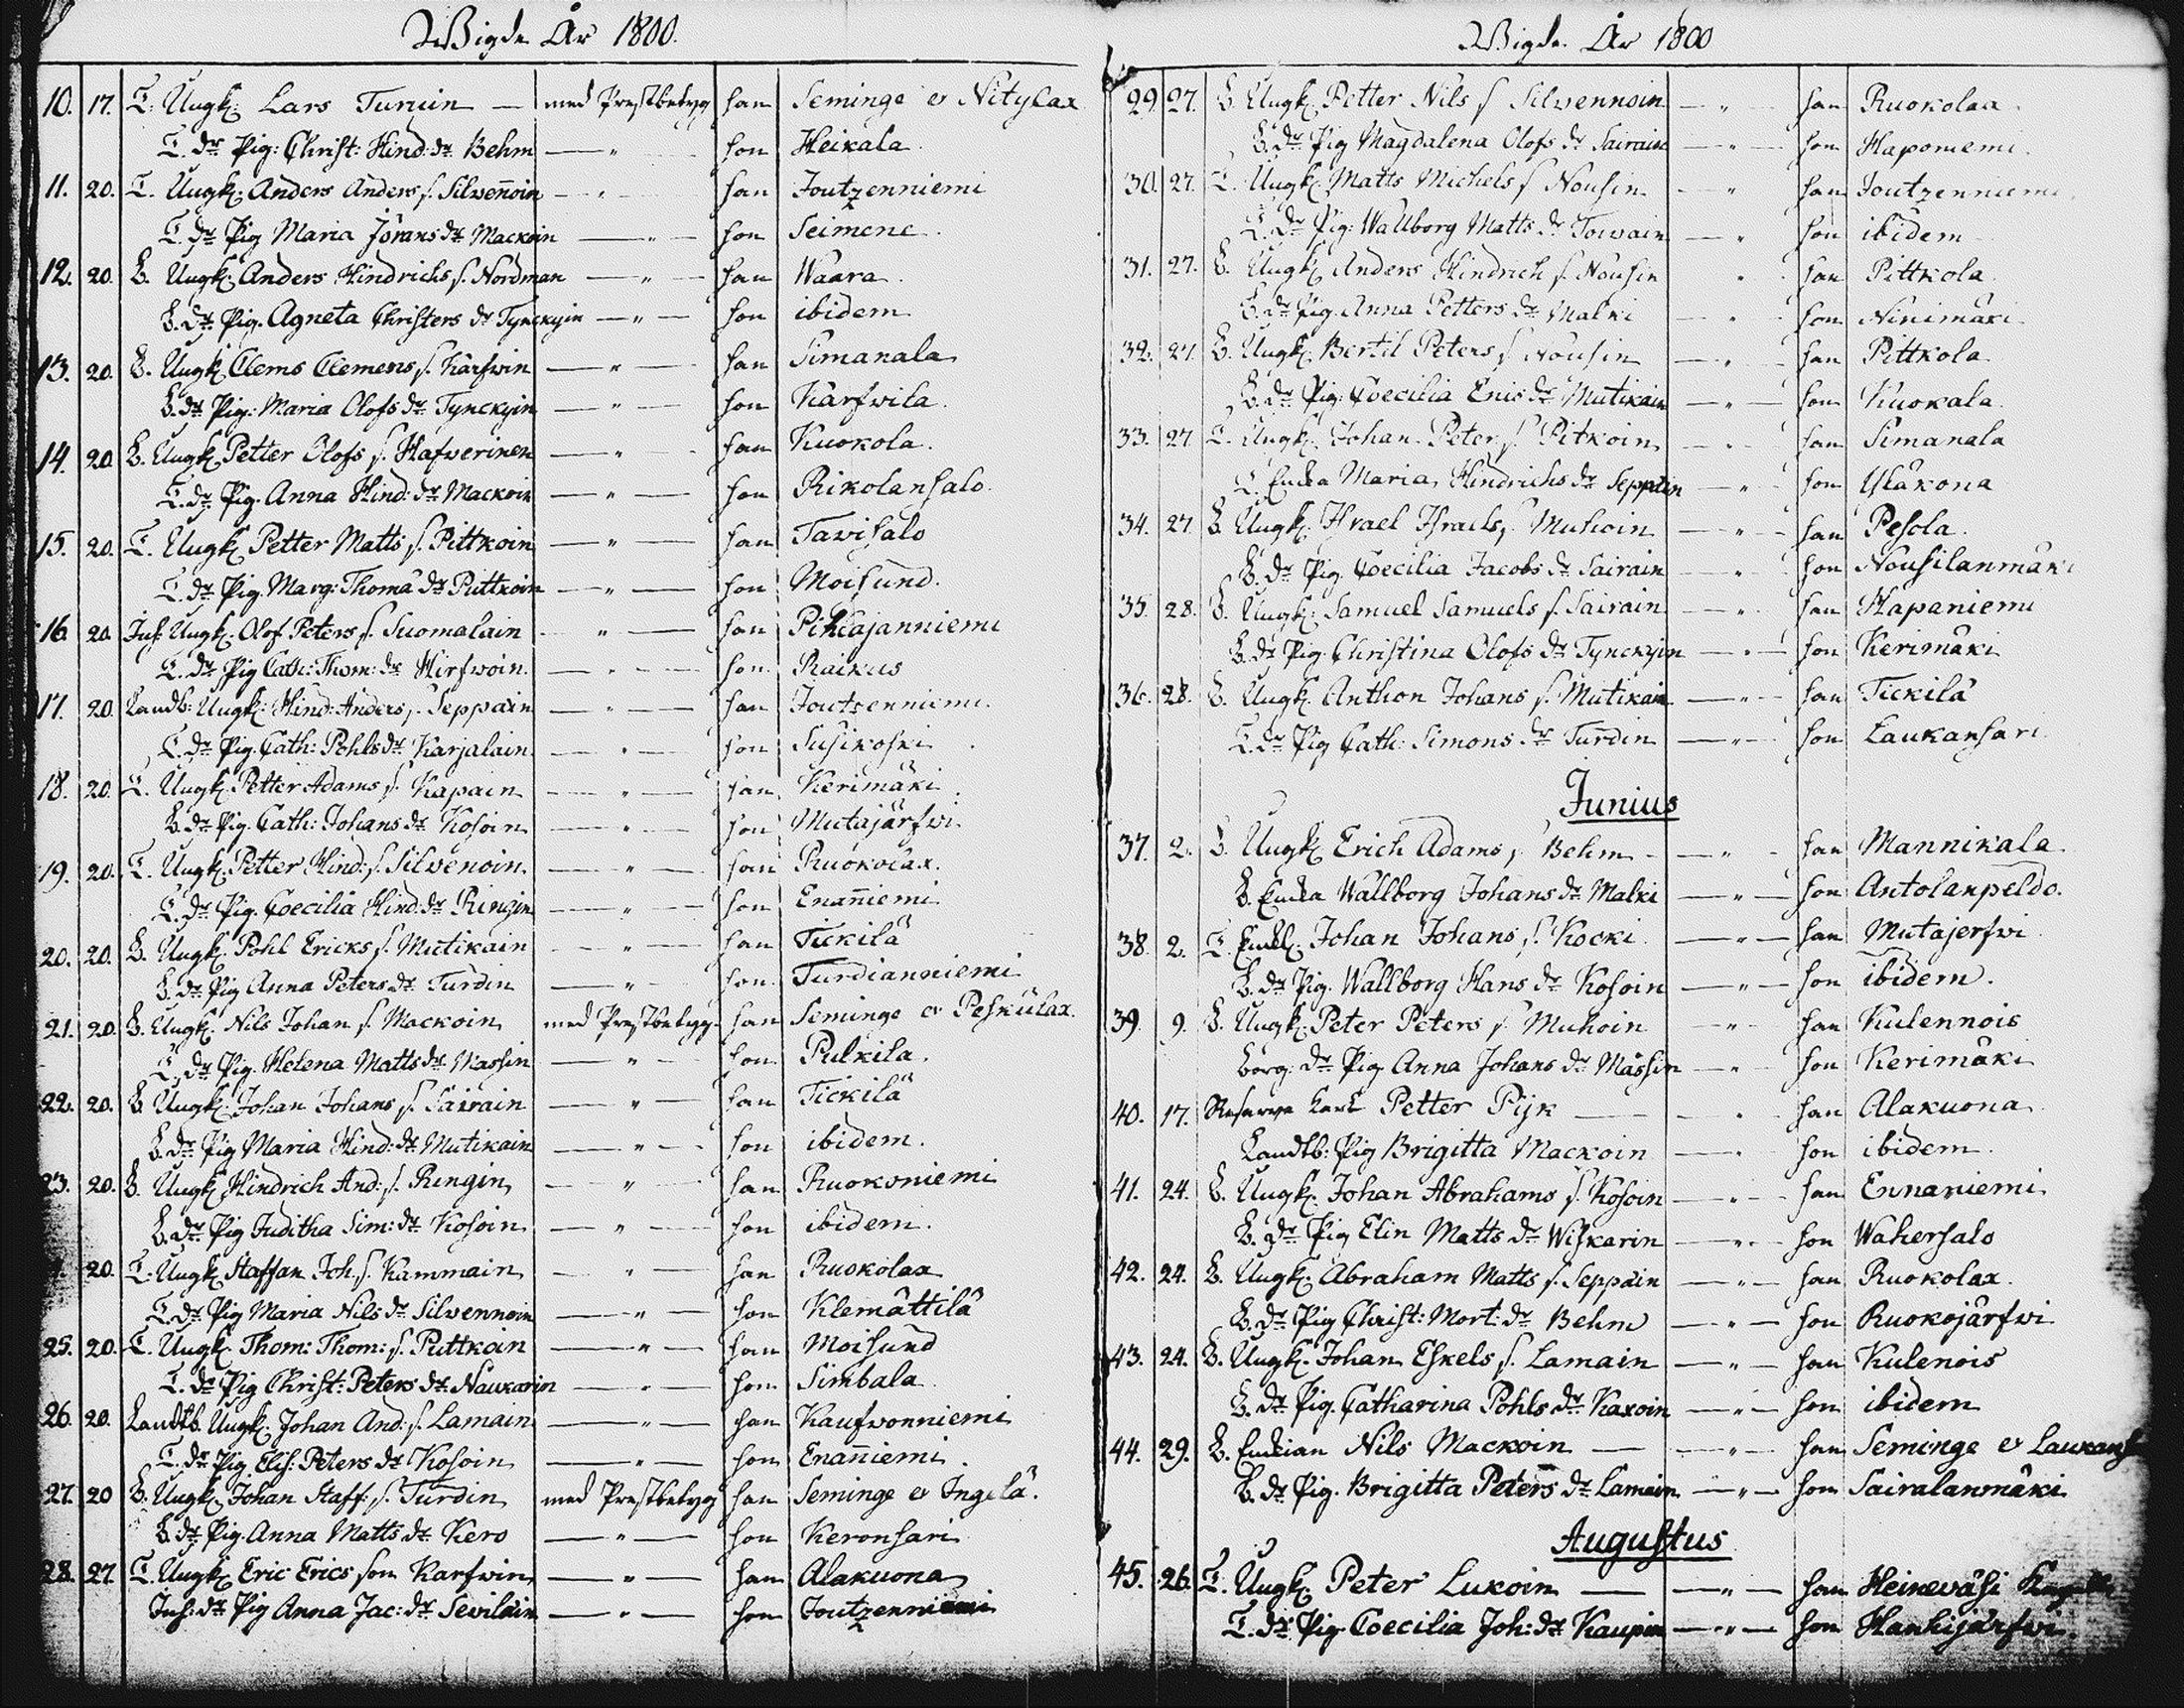 Wigde År 1800.
10. 17. T. Ungk. Lars Turuin — med Prestbetyg han Seminge o Nitylax
T. dr Pig: Christ: Hind: dr Behm — " — hon Heikala.
11. 20. T. Ungk. Anders Anders s. Silwen̄oin — " — han Joutzenniemi
T. dr Pig Maria Jörans dr Mackoin — " — hon Seimene.
12. 20. B. Ungk. Anders Hindrichs s. Nordman — " — han Waara.
B. dr Pig. Agneta Christers dr Tynckyin — " — hon ibidem
13. 20. B. Ungk. Clems Clemens s. Karfwin — " — han Simanala
B. dr Pig: Maria Olofs dr Tynckyin — " — hon Karfwila.
14. 20. B. Ungk. Petter Olofs s. Hafwerinen — " — han Kuokola.
T. dr Pig. Anna Hind: dr Mackoin — " — hon Rikolansalo.
15. 20. T. Ungk. Petter Matts s. Pittkoin — " — han Tavisalo
T. dr Pig. Marg: Thoma dr Puttkoin — " — hon Moisund.
16. 20. Inh: Ungk. Olof Peters s. Suomalain — " — han Pihlajanniemi
T. dr Pig Cath: Thom: dr Hirfwoin. — " — hon Raikus
17. 20. Landb: Ungk: Hind: Anders s. Seppäin — " — han Joutsenniemi.
T. dr Pig. Cath: Pohls dr Karjalain. — " — hon Susikoski
18. 20. T. Ungk. Petter Adams s. Kapain — " — han Kerimäki.
B. dr Pig. Cath: Johans dr Kosoin — " — hon Mutajärfwi.
19. 20. T. Ungk. Petter Hind: s. Silvenoin. — " — han Ruokolax.
T. dr Pig. Coecilia Hind: dr Ringin — " — hon Enan̄iemi
20. 20. B. Ungk. Pohl Ericks s. Mutikain — " — han Tickilä
B. dr Pig Anna Peters dr Turdin — " — hon Turdianniemi
21. 20. B. Ungk. Nils Johan s. Mackoin, med Prestbetyg. han Seminge o Peskülax.
T. dr Pig. Helena Matts dr Massin — " — hon Pulkila.
22. 20. B. Ungk. Johan Johans s. Sairain — " — han Tickilä
B. dr Pig Maria Hind: dr Mutikain — " — hon ibidem.
23. 20. B. Ungk. Hindrich And: s. Ringin, — " — han Ruokoniemi
B. dr Pig Juditha Sim: dr Kosoin — " — hon ibidem.
20. T. Ungk. Staffan Joh. s. Kammain — " — han Ruokolax
T. dr Pig Maria Nils dr Silvennoin — " — hon Klemättilä
25. 20. T. Ungk. Thom: Thom: s. Puttkoin — " — han Moisund
T. dr Pig Christ: Peters dr Naukarin — " — hon Simbala
26. 20. Landtb. Ungk. Johan And: s. Lamain — " — han Kaufwonniemi
T. dr Pig Elis: Peters dr Kosoin — " — hon Enan̄iemi.
27. 20 B. Ungk. Johan Staff: s. Turdin med Prestbetyg han Seminge o Ingelä.
B. dr Pig. Anna Matts dr Kero — " — hon Keronsari
28. 27 T. Ungk. Eric Erics son Karfwin — " — han Alakuona
Inh: dr Pig Anna Jac: dr Seviläin — " — hon Joutzenniemi
Wigde År 1800
29. 27. B. Ungk. Petter Nils s Silvennoin — " — han Ruokolax
B. dr Pig Magdalena Olofs dr Sairain — " — hon Haponiemi.
30. 27. T. Ungk. Matts Michels s Nousin — " — han Joutzenniemi
T. dr Pig: Wallborg Matts dr Toiwain — " — hon ibidem
31. 27. B. Ungk. Anders Hindrich s. Nousin " han Pittkola.
B. dr Pig. Anna Petters dr Malki — " — hon Ninimäki
32. 27. B. Ungk. Bertil Peters s Nousin — " — han Pittkola.
B. dr Pig: Coecilia Enis dr Mutikain — " — hon Kuokala.
33. 27 T. Ungk. Johan Peter s. Pitkoin — " — han Simanala
T. Enka Maria Hindrichs dr Seppäin — " — hon Yläkona
34. 27 B. Ungk. Israel Israels s. Muhoin — " — han Pesola.
B. dr Pig. Coecilia Jacobs dr Sairain — " — hon Nousilanmäki
35. 28. B. Ungk. Samuel Samuels s. Sairain — " — han Hapaniemi
B. dr Pig. Christina Olofs dr Tynckyin — " — hon Kerimäki
36. 28. B. Ungk. Anthon Johans s. Mutikain — " — han Tickilä
T. dr Pig Cath: Simons dr Turdin — " — hon Laukansari.
Junius
37. 2. B. Ungk. Erich Adams s. Behm — " — han Mannikala
B. Enka Wallborg Johans dr Malki — " — hon Antolanpeldo.
38. 2. T. Enkl. Johan Johans s. Kocki. — " — han Mutajerfwi
B. dr Pig. Wallborg Hans dr Kosoin — " — hon ibidem.
39 9. B. Ungk. Peter Peters s. Muhoin — " — han Kulennois
borg. dr Pig Anna Johans dr Mässin — " — hon Kerimäki
40. 17. Reserve karl Petter Pijk — " han Alakuona
Landtb: Pig Brigitta Mackoin — " hon ibidem.
41. 24. B. Ungk. Johan Abrahams s. Kosoin — " — han Ennaniemi
B. dr Pig Elin Matts dr Wiskarin — " — hon Wahersalo
42. 24. B. Ungk. Abraham Matts s. Seppäin — " — han Ruokolax.
B. dr Pig Christ: Mort: dr Behm — " — hon Ruokojärfwi
43. 24. B. Ungk. Johan Eskels s. Lamain — " — han Kulenois
B. dr Pig. Catharina Pohls dr Kaxoin — " — hon ibidem
44. 29. B. Enkian Nils Mackoin — " — han Seminge o Laukans
B. dr Pig. Brigitta Peters dr Lamain — " — hon Sairalanmäki
Augustus
45. 26. T. Ungk. Peter Lukoin — " — han Heineväsi
T. dr Pig. Coecilia Joh: dr Kaupin — " — hon Hankijärfwi.